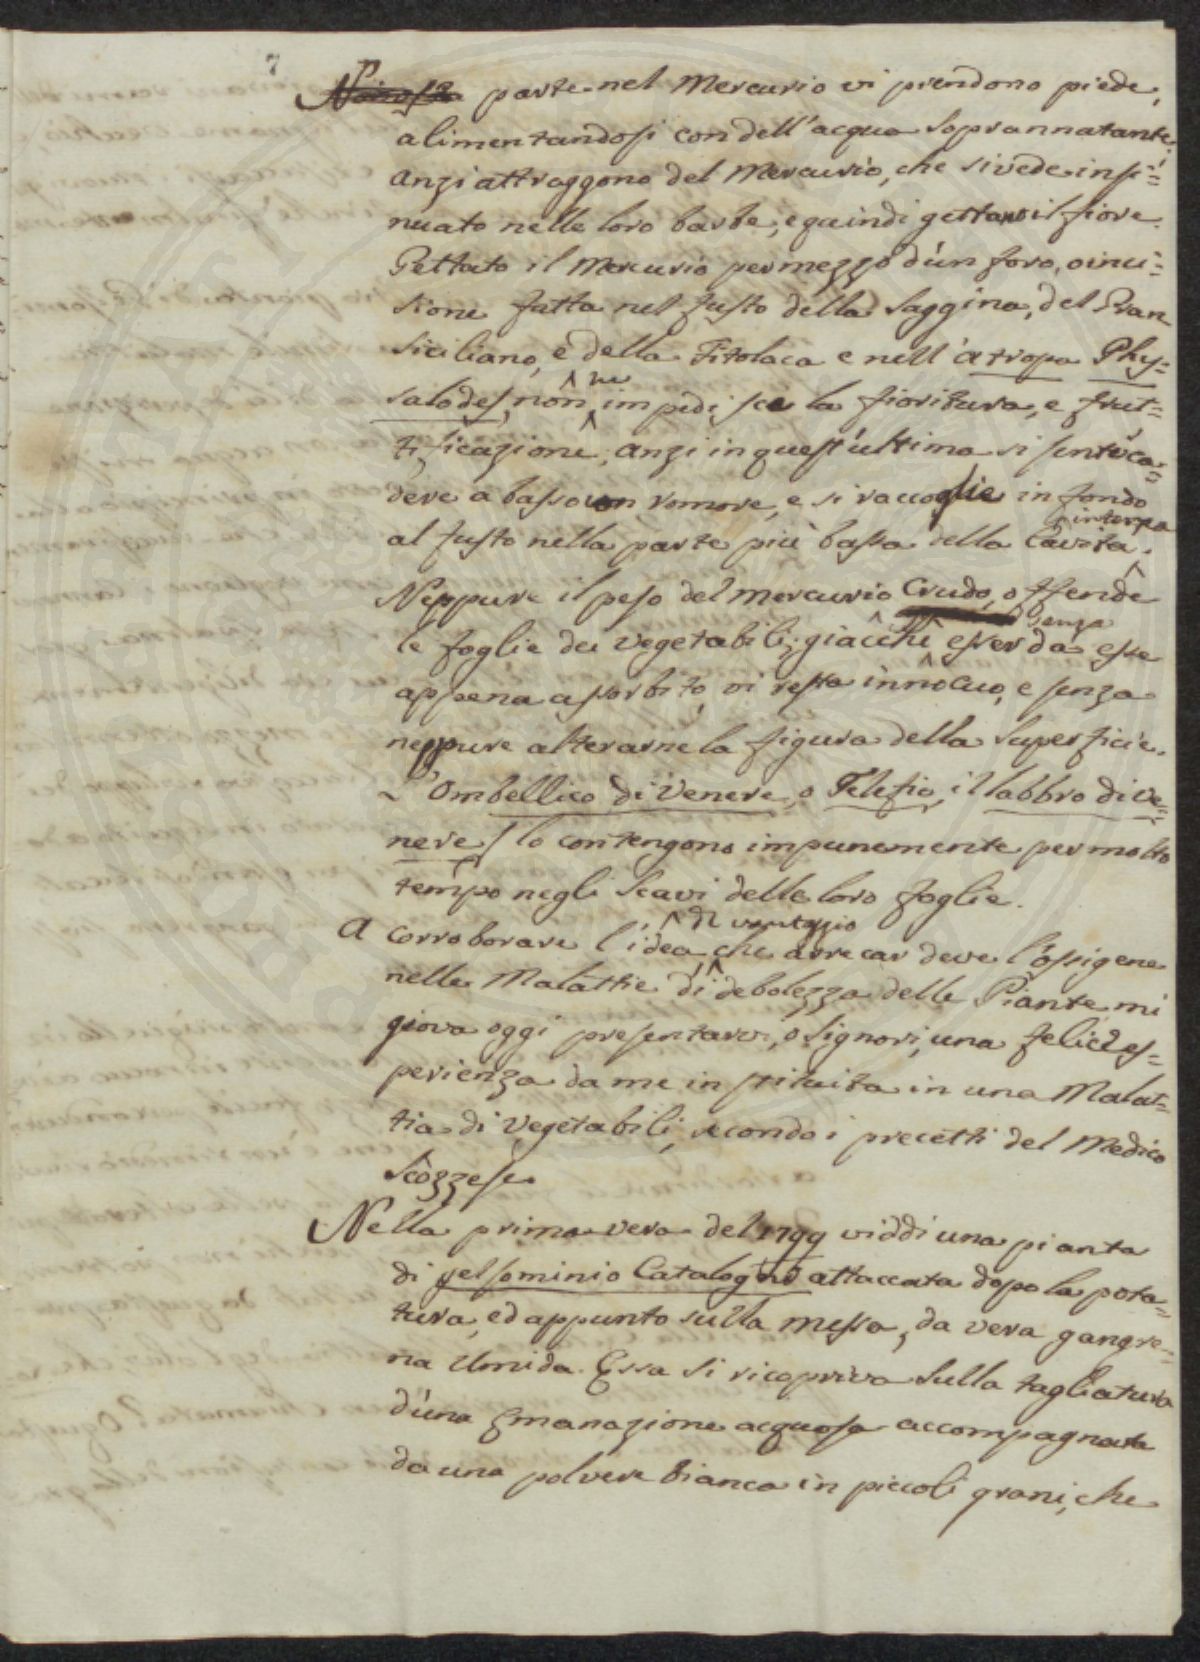 7
parte nel Mercurio vi prendono piede,
alimentandosi con dell'acqua soprannatante;
anzi attraggono del Mercurio, che si vede insi=
nuato nelle loro barbe, e quindi gettano il fiore.
Gettato il Mercurio per mezzo d'un foro, o inci=
sione fatta nel fusto della Saggina, del Gran
Siciliano, e della Fitolaca e nell'atropa Phy=
salodes, non ne impedisce la fioritura, e frut=
tificazione; anzi in quest'ultima si sente ca=
dere a basso con romore, e si raccoglie in fondo
al fusto nella parte più bassa della Cavità interna.
Neppure il peso del mercurio Crudo, offende
le foglie dei Vegetabili; giacchè senza esser da esse
appena assorbito, vi resta innocuo, e senza
neppure alterarne la figura della superficie.
L'Ombellico di Venere, o Telefio, il labbro di Ve=
nere / lo contengono impunemente per molto
tempo negli Scavi delle loro foglie.
A corroborare l'idea di vantaggio che arrecar deve l'ossigene
nelle Malattie di debolezza delle Piante mi
giova oggi presentarvi, o Signori, una felice es=
perienza da me instituita in una Malat=
tia di Vegetabili, secondo i precetti del Medico
Scozzese.
Nella prima vera del 1799 viddi una pianta
di gelsominio Catalogno attaccata dopo la pota=
tura, ed appunto sulla messa, da vera gangre=
na Umida. Essa si ricopriva sulla tagliatura
d'una Emanazione acquosa accompagnata
da una polvere bianca in piccoli grani, che